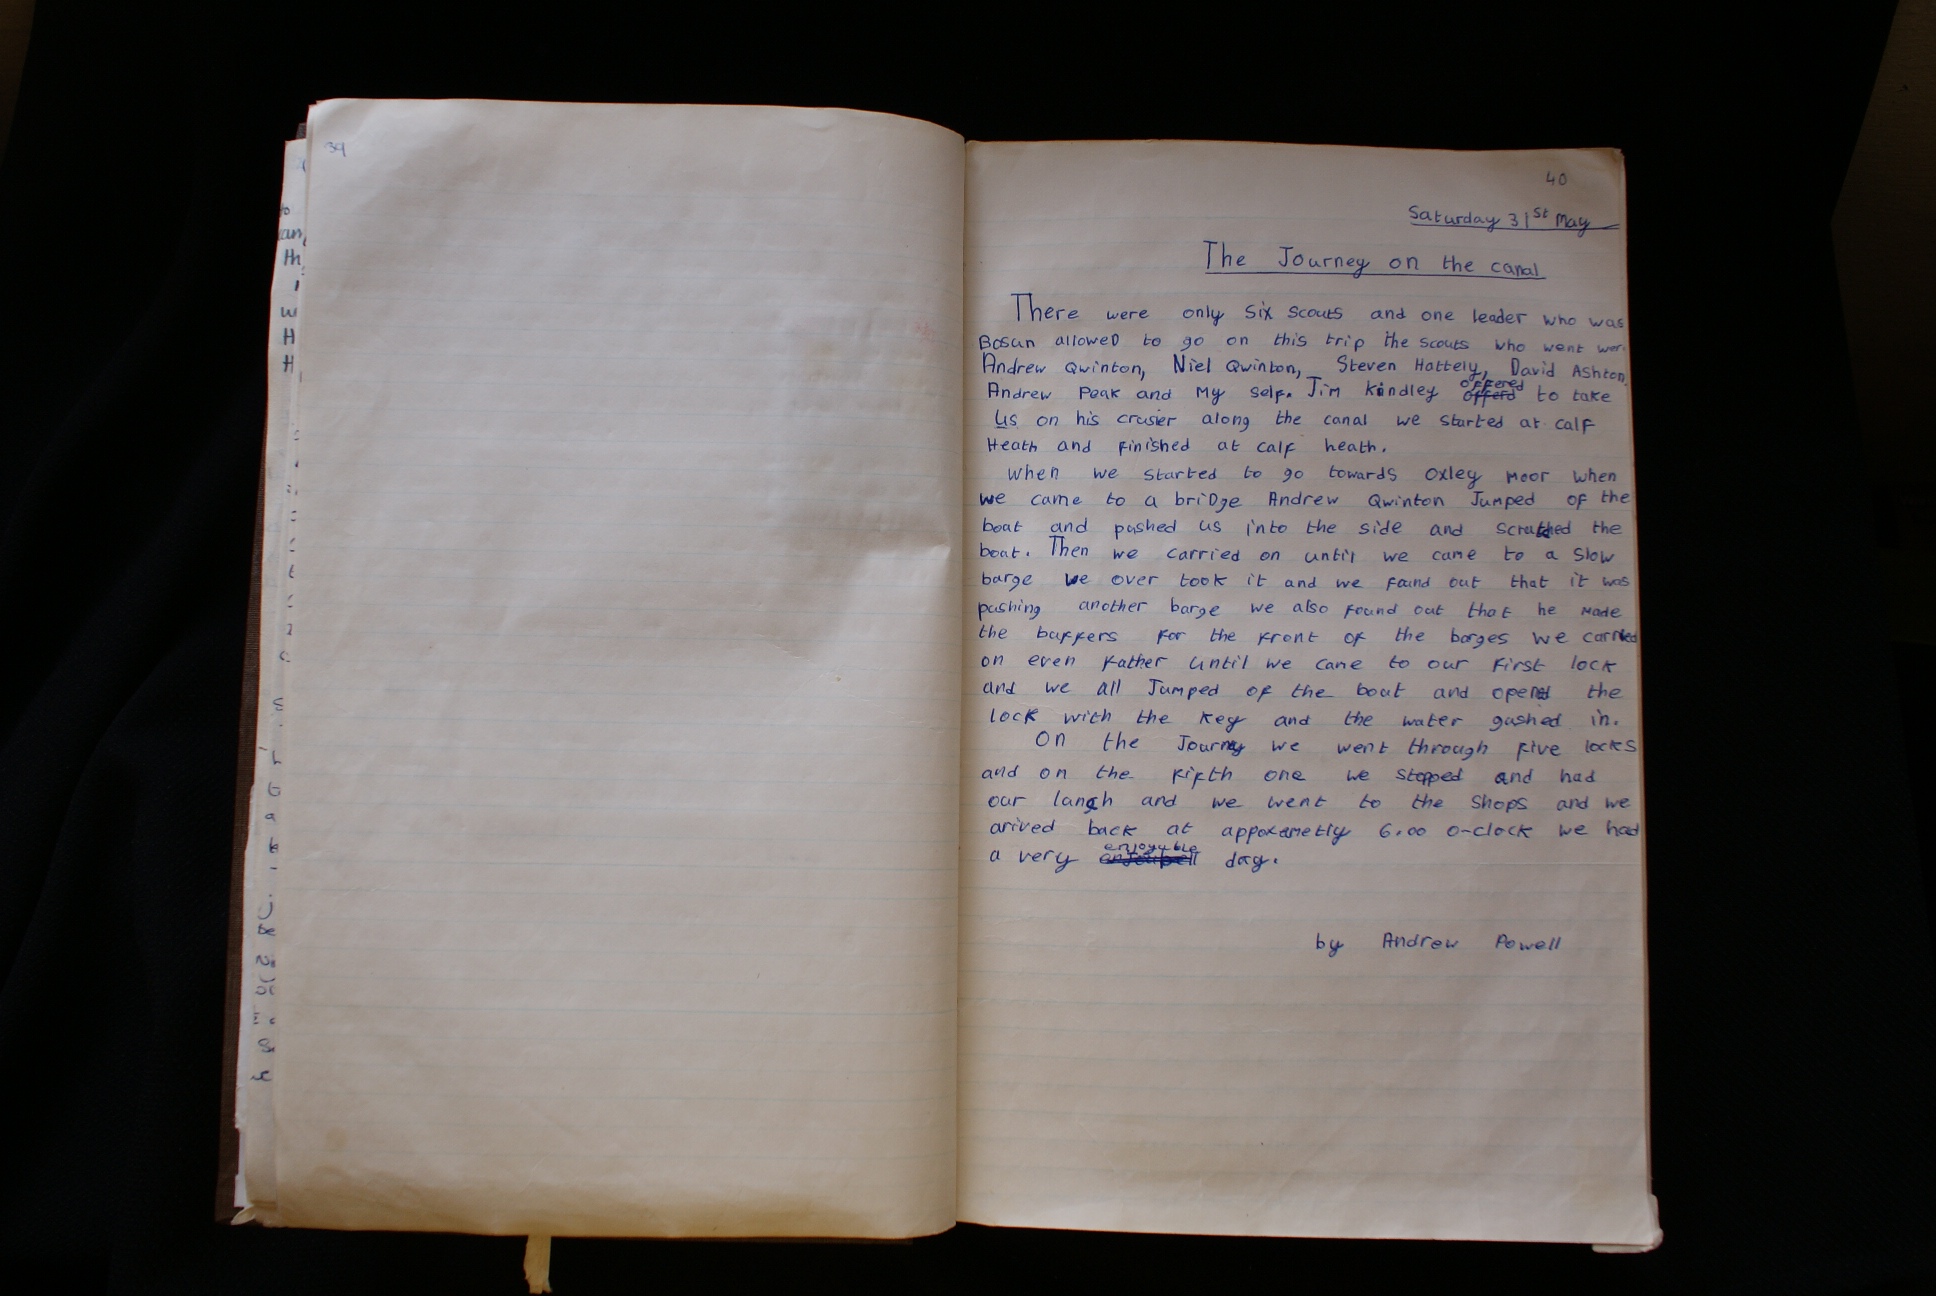 39
40
Saturday 31st May
The Journey on the canal
There were only six scouts and one leader who was
Bosun allowed to go on this trip the scouts who went wer
Andrew Qwinton, Niel Qwinton, Steven Hattely, David Ashton,
Andrew Peak and My self. Jim Kindley offered to take
us on his crusier along the canal we started at calf
Heath and finished at calf heath.
When we started to go towards Oxley moor when
we came to a briDge Andrew Qwinton Jumped of the
boat and pushed us into the side and scratched the
boat. Then we carried on until we came to a slow
barge we over took it and we found out that it was
pushing another barge we also found out that he made
the buffers for the front of the barges we carried
on even father until we came to our first lock
and we all Jumped of the boat and opened the
lock with the key and the water gushed in.
On the Journey we went through five locks
and on the fifth one we stopped and had
our lanch and we went to the shops and we
arived back at appoxemetly 6.00 o-clock we had
a very enjoyable day.
by Andrew Powell